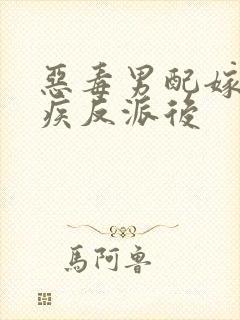 惡毒男配嫁
疾反派後
馬阿魯